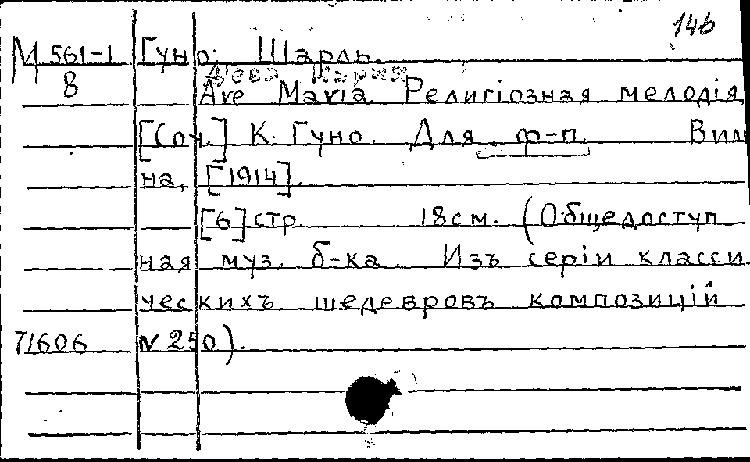 146
М 561-1 Гуно. Шарль.
8 Дева Мария
Ave Maria. Религіозная мелодія
[Соч.] К. Гуно. Для ф-п. Вил
на, [1914].
[6] стр. 18 см. (Общедоступ
ная муз. б-ка. Изъ серіи класси
ческихъ шедевровъ композицій
71606 N 250).